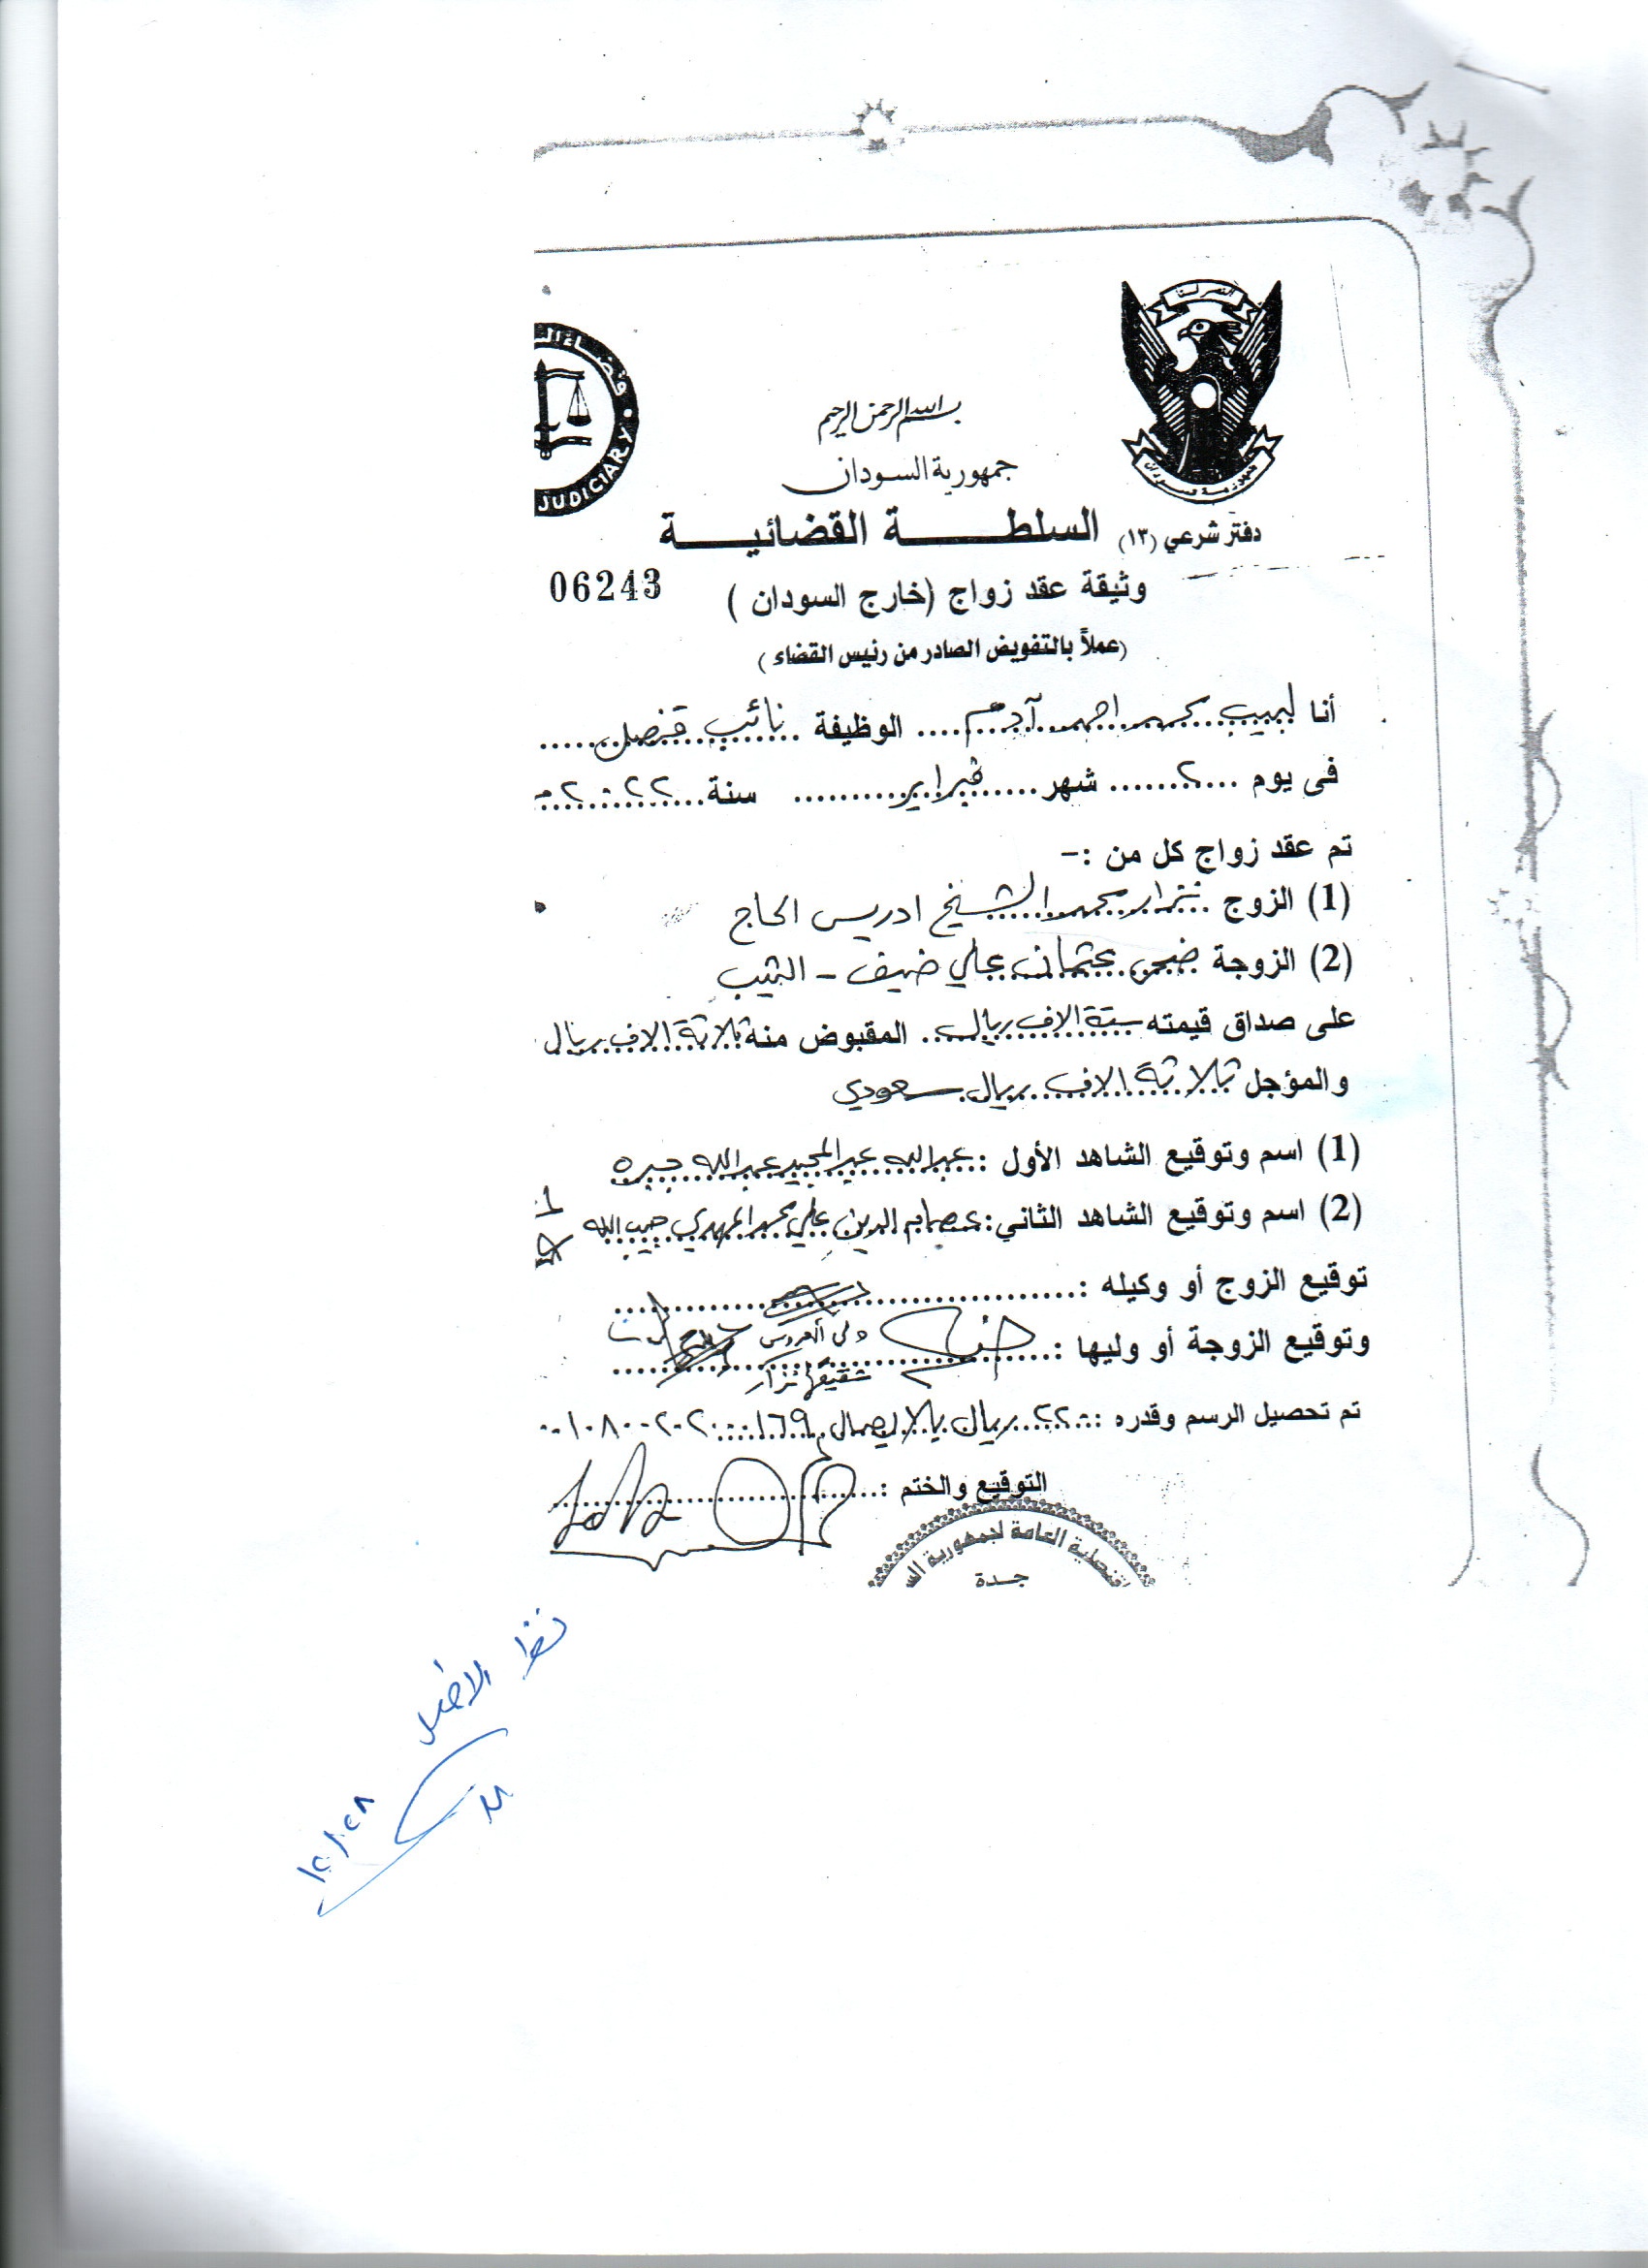 النصر لنا
جمهورية السودان
قضاء الس
JUDICIARY
بسم الله الرحمن الرحيم
جمهورية السودان
دفتر شرعي (١٣) السلطة القضائية
وثيقة عقد زواج (خارج السودان ) 06243
(عملاً بالتفويض الصادر من رئيس القضاء )
أنا لبيب محمد احمد آدم الوظيفة نائب قنصل
فى يوم ٢ شهر فبراير سنة ٢٠٢٢م
تم عقد زواج كل من :-
(1) الزوج نزار محمد الشيخ ادريس الحاج
(2) الزوجة ضحى عثمان علي ضيف - الثيب
على صداق قيمته ستة الاف ريال المقبوض منه ثلاثة الاف ريال
والمؤجل ثلاثة الاف ريال سعودي
(1) اسم وتوقيع الشاهد الأول : عبدالله عبدالمجيد عبدالله جبره
(2) اسم وتوقيع الشاهد الثاني: عصام الدين علي محمد المهدي حبيب الله
توقيع الزوج أو وكيله :
وتوقيع الزوجة أو وليها : ولى العروس
شقيقها نزار
تم تحصيل الرسم وقدره : ٢٢٠ ريال بالايصال
التوقيع والختم :
قنصلية العامة لجمهورية الس
جدة
نظر الاصل